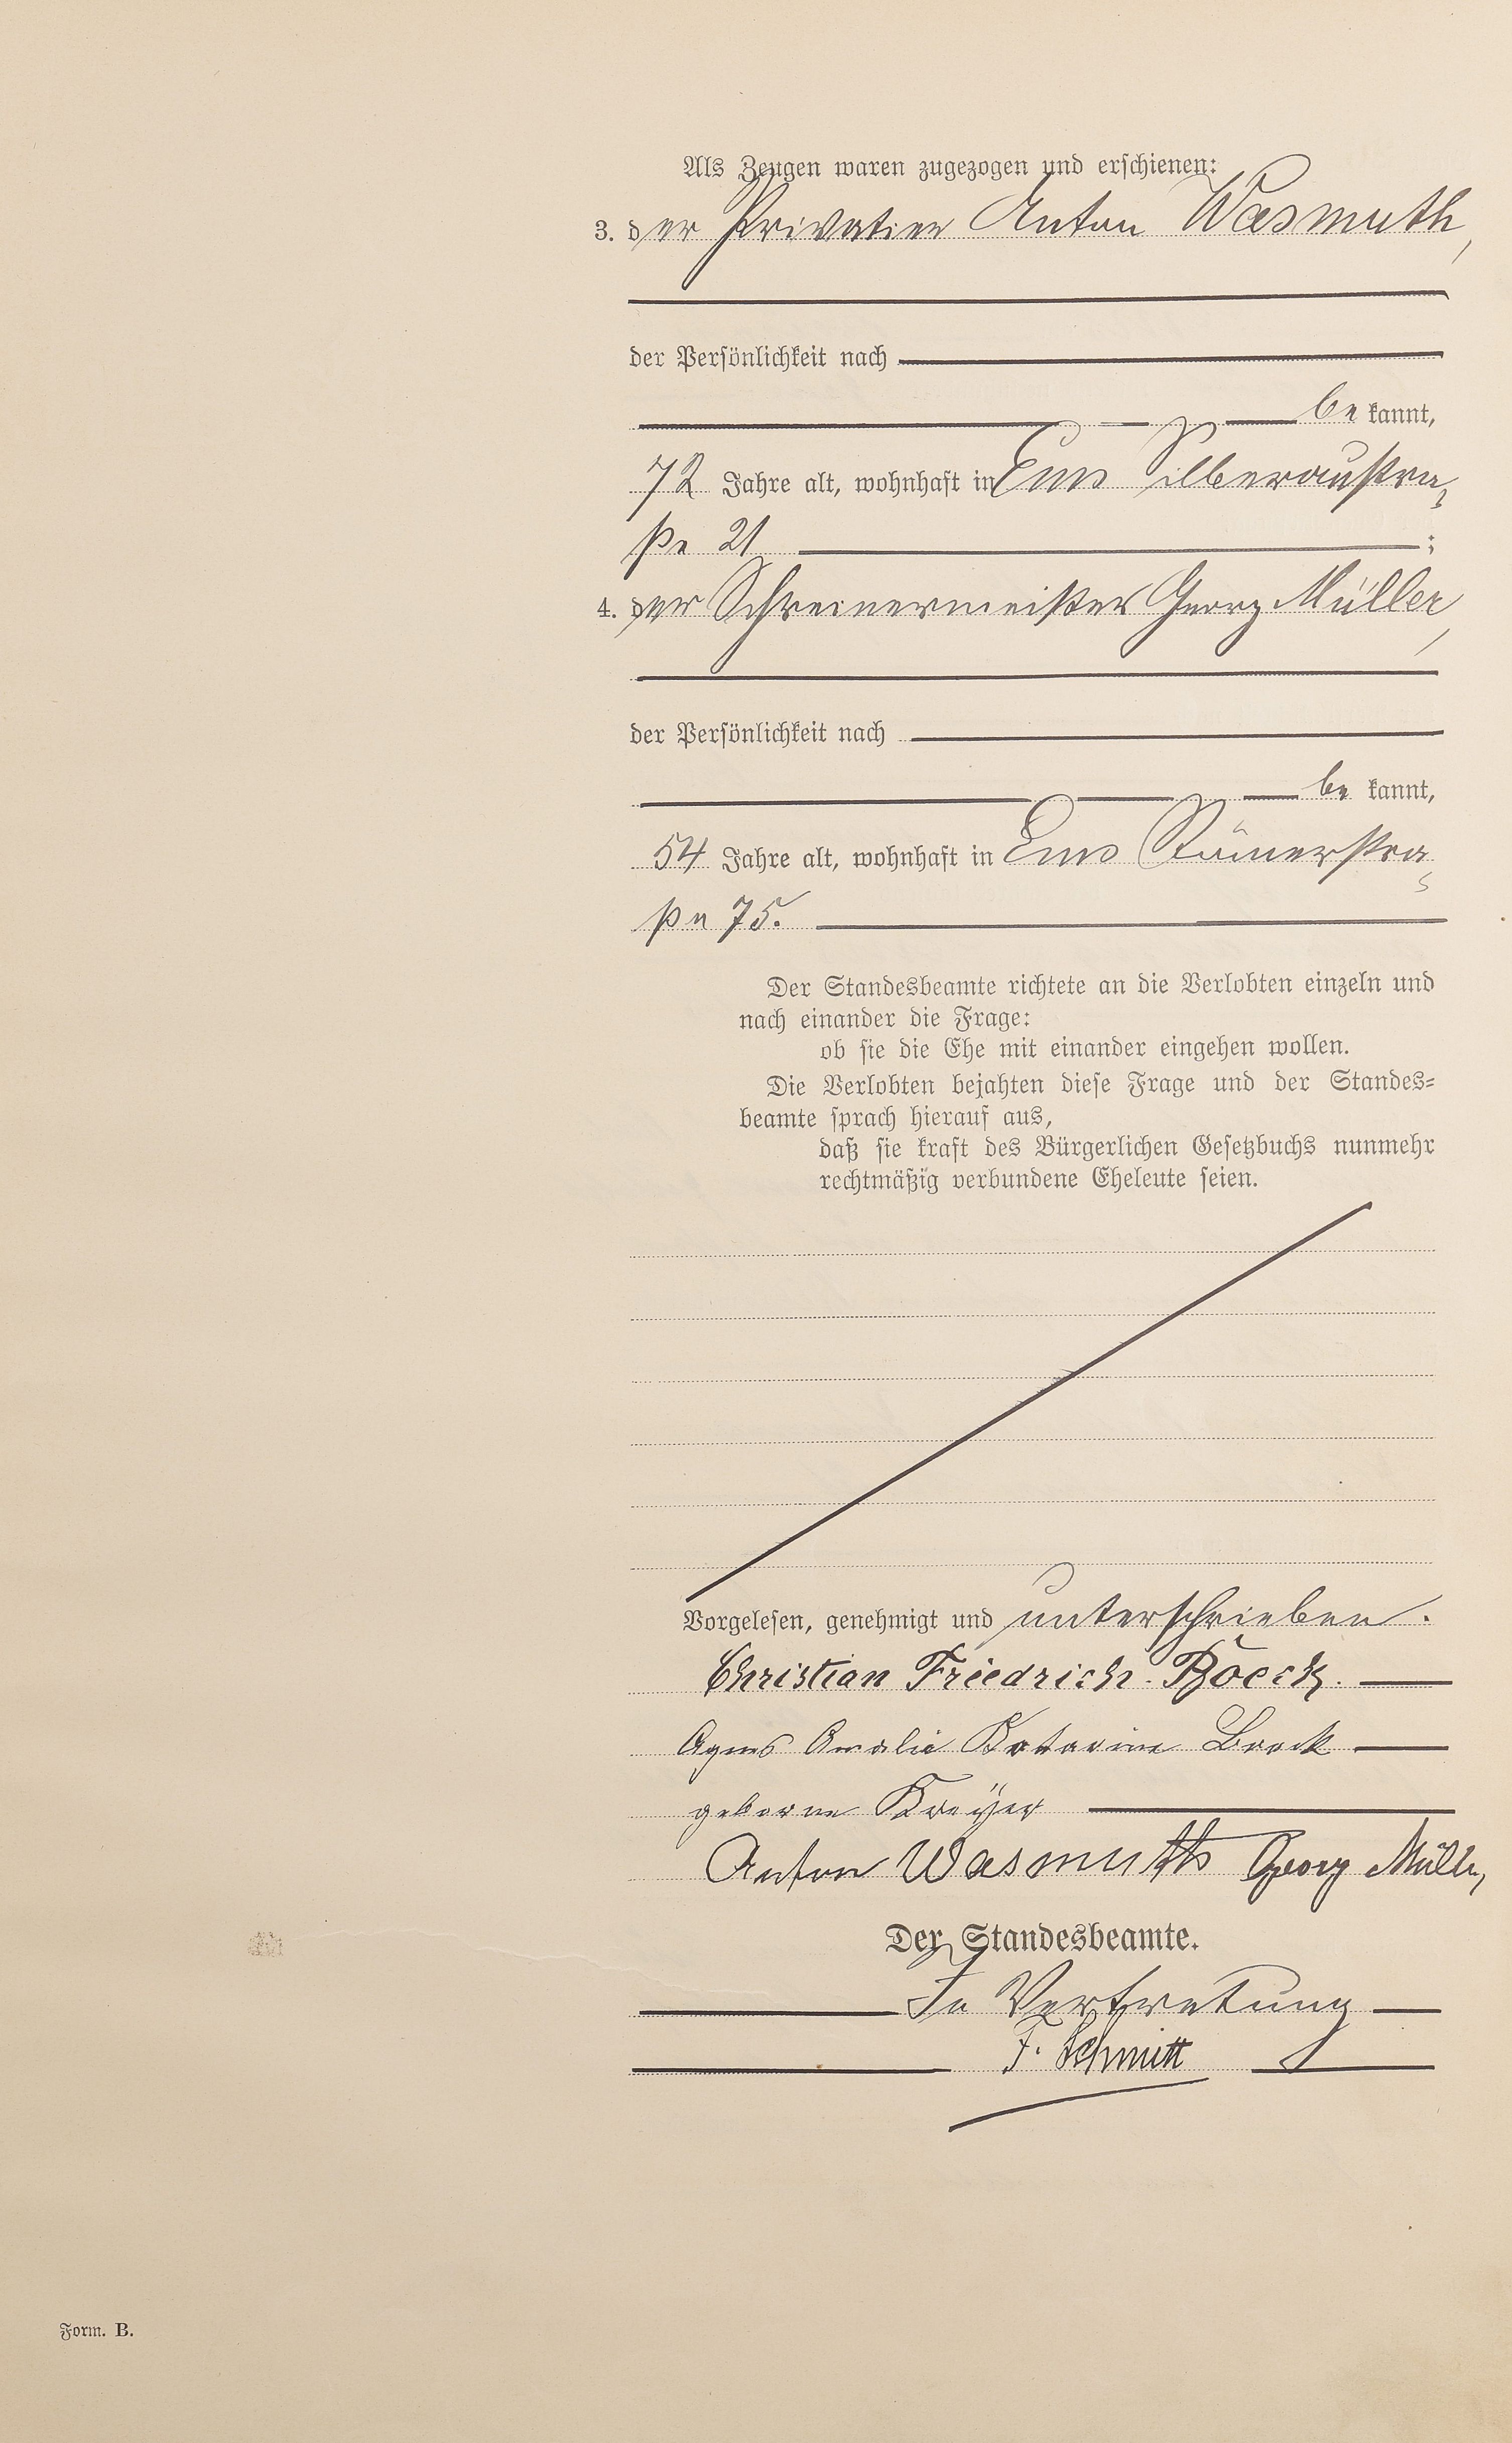 Als Zeugen waren zugezogen und erschienen:
3. der Privatier Anton Wasmuth,
der Persönlichkeit nach
be kannt,
72 Jahre alt, wohnhaft in Ems Silberaustra-
ße 21 ;
4. der Schreinermeister Georg Müller,
der Persönlichkeit nach
be kannt,
54 Jahre alt, wohnhaft in Ems Römerstra-
ße 75.
Der Standesbeamte richtete an die Verlobten einzeln und
nach einander die Frage:
ob sie die Ehe mit einander eingehen wollen.
Die Verlobten bejahten diese Frage und der Standes-
beamte sprach hierauf aus,
daß sie kraft des Bürgerlichen Gesetzbuchs nunmehr
rechtmäßig verbundene Eheleute seien.
Vorgelesen, genehmigt und unterschrieben.
Christian Friedrich Boeck.
Agnes Amalie Katarine Boeck
geborne Kreyer
Anton Wasmuth Georg Müller,
Der Standesbeamte.
In Vertretung
F. Schmitt
Form. B.